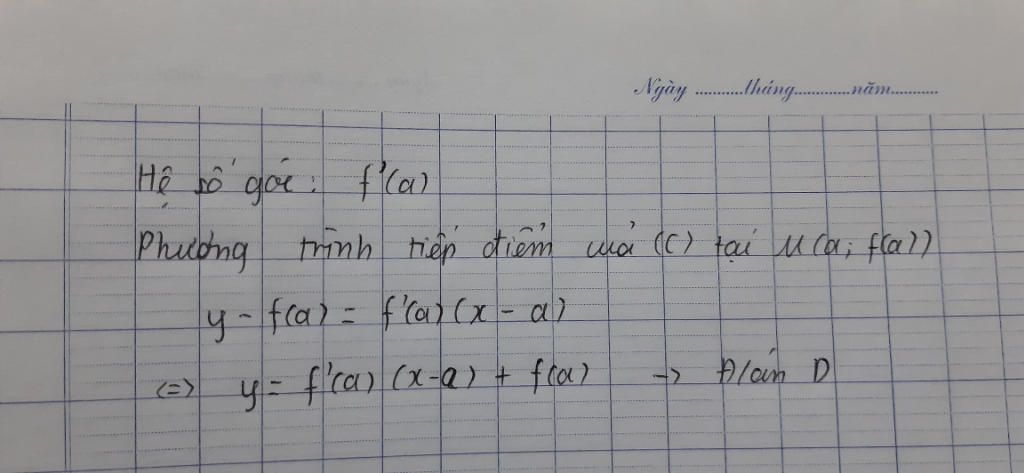 Ngày ...........tháng............năm...........
Hệ số góc: f'(a)
Phương trình tiếp điểm của (C) tại M(a; f(a))
y - f(a) = f'(a)(x - a)
<=> y = f'(a) (x-a) + f(a) -> Đ/án D